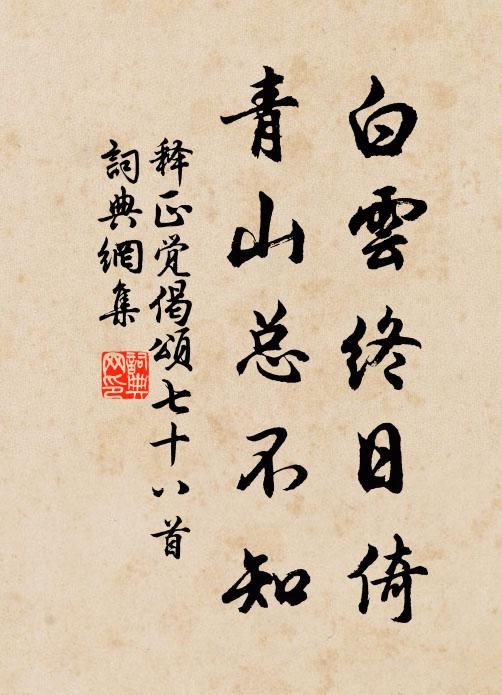 白雲終日倚
青山总不知
释正覚偈頌七十八首
詞典網集
詞典网印